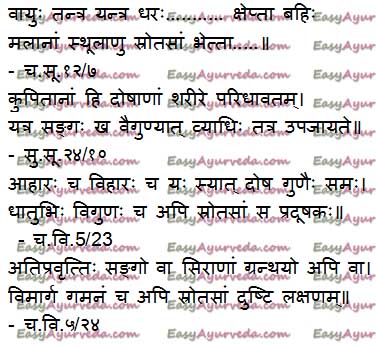 वायुः तन्त्र यन्त्र धरः........... क्षेप्ता बहिः
मलानां स्थूलाणु स्रोतसां भेत्ता.....॥
- च.सू.१२/७
कुपितानां हि दोषाणां शरीरे परिधावताम्।
यत्र सङ्गः ख वैगुण्यात् व्याधिः तत्र उपजायते॥
- सु.सू.२४/१०
आहारः च विहारः च यः स्यात् दोष गुणैः समः।
धातुभिः विगुणः च अपि स्रोतसां स प्रदूषकः॥
- च.वि.5/23
अतिप्रवृत्तिः सङ्गो वा सिराणां ग्रन्थयो अपि वा।
विमार्ग गमनं च अपि स्रोतसां दुष्टि लक्षणम्॥
- च.वि.५/२४
EasyAyurveda.com